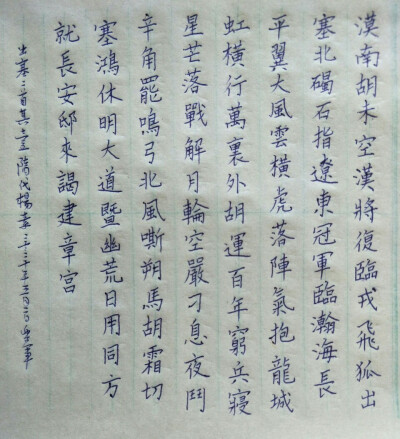 漠南胡未空漢將復臨戎飛狐出
塞北碣石指遼東冠軍臨瀚海長
平翼大風雲橫虎落陣氣抱龍城
虹橫行萬裏外胡運百年窮兵寢
星芒落戰解月輪空嚴刁息夜鬥
辛角罷鳴弓北風嘶朔馬胡霜切
塞鴻休明大道暨幽荒日用同方
就長安邸來謁建章宮
出塞二首其壹隋代楊素